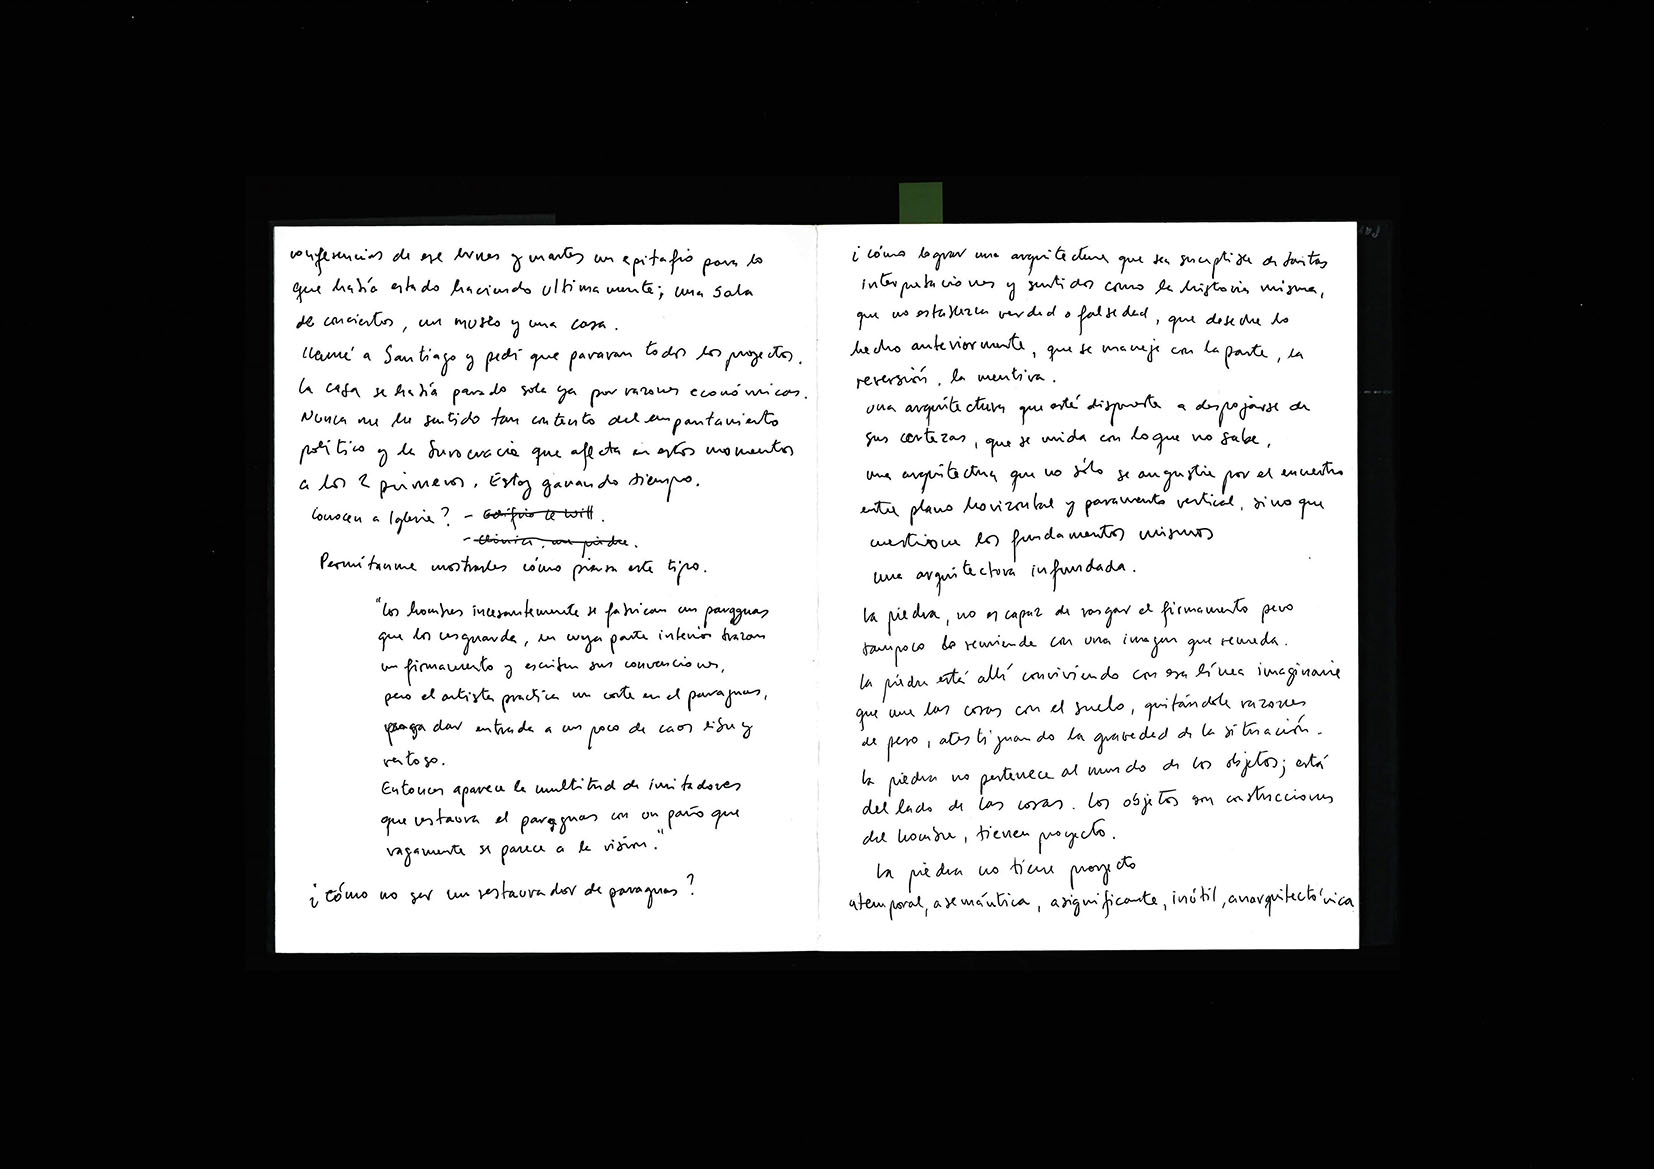 conferencias de ese lunes y martes un epitafio para lo
que había estado haciendo ultimamente; una sala
de conciertos, un museo y una casa.
llamé a Santiago y pedí que pararan todos los proyectos.
la casa se había parado sola ya por razones económicas.
Nunca me he sentido tan contento del empantamiento
político y la burocracia que afecta en estos momentos
a los 2 primeros. Estoy ganando tiempo.
Conocen a Iglesia? -
Permítanme mostrarles cómo piensa este tipo.
"los hombres incesantemente se fabrican un paraguas
que los resguarda, en cuya parte interior trazan
un firmamento y escriben sus convenciones,
pero el artista practica un corte en el paraguas,
para dar entrada a un poco de caos libre y
ventoso.
Entonces aparece la multitud de imitadores
que restaura el paraguas con un paño que
vagamente se parece a la visión."
¿Cómo no ser un restaurador de paraguas?
¿cómo lograr una arquitectura que sea susceptible de tantas
interpretaciones y sentidos como la historia misma,
que no establezca verdad o falsedad, que deseche lo
hecho anteriormente, que se maneje con la parte, la
reversión, la mentira.
una arquitectura que esté dispuesta a despojarse de
sus certezas, que se mida con lo que no sabe,
una arquitectura que no sólo se angustie por el encuentro
entre plano horizontal y paramento vertical, sino que
cuestione los fundamentos mismos
una arquitectura infundada.
la piedra, no es capaz de rasgar el firmamento pero
tampoco lo remienda con una imagen que remeda.
la piedra está allí conviviendo con esa línea imaginaria
que une las cosas con el suelo, quitándole razones
de peso, atestiguando la gravedad de la situación.
la piedra no pertenece al mundo de los objetos; está
del lado de las cosas. los objetos son construcciones
del hombre, tienen proyecto.
la piedra no tiene proyecto
atemporal, asemántica, asignificante, inútil, anarquitectónica